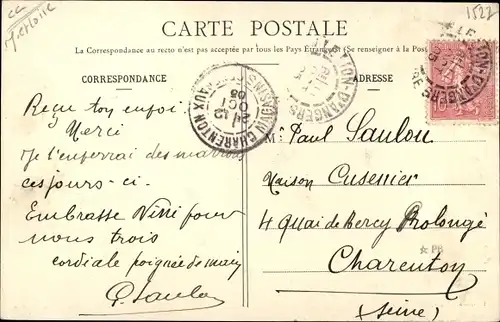 CARTE POSTALE
La Correspondance au recto n'est pas acceptée par tous les Pays Étrangers (Se renseigner à la Poste)
CORRESPONDANCE
ADRESSE
1522
Reçu ton envoi
Merci
Je t'enverrai des marrons
ces jours-ci.
Embrasse Nini pour
nous trois
cordiale poignée de main
P. Saulou
CHARENTON MAGASINS GENERAUX
OCT
05
LION-D'ANGERS
Mr Paul Saulou
Maison Cusenier
4 Quai de Bercy Prolongé
PB
Charenton
(Seine)